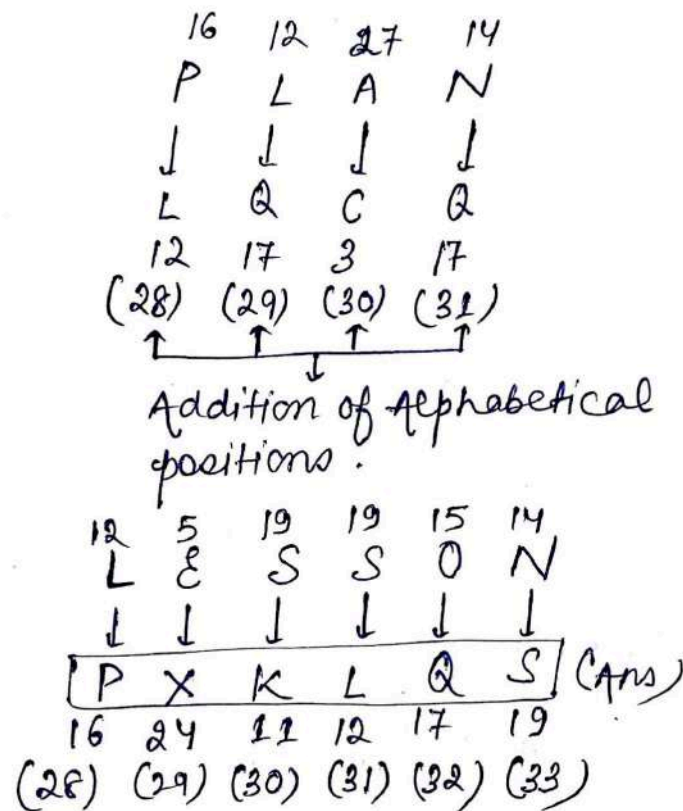 16 12 27 14
P L A N
↓ ↓ ↓ ↓
L Q C Q
12 17 3 17
(28) (29) (30) (31)
Addition of Alphabetical
positions.
12 5 19 19 15 14
L E S S O N
↓ ↓ ↓ ↓ ↓ ↓
P X K L Q S (Ans)
16 24 11 12 17 19
(28) (29) (30) (31) (32) (33)